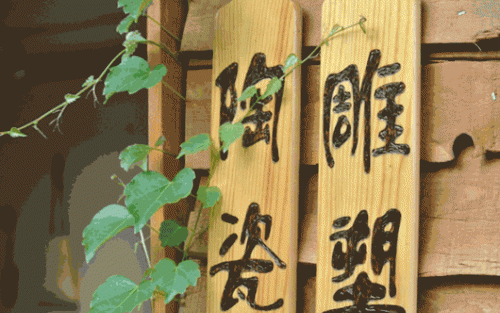 陶瓷
雕塑